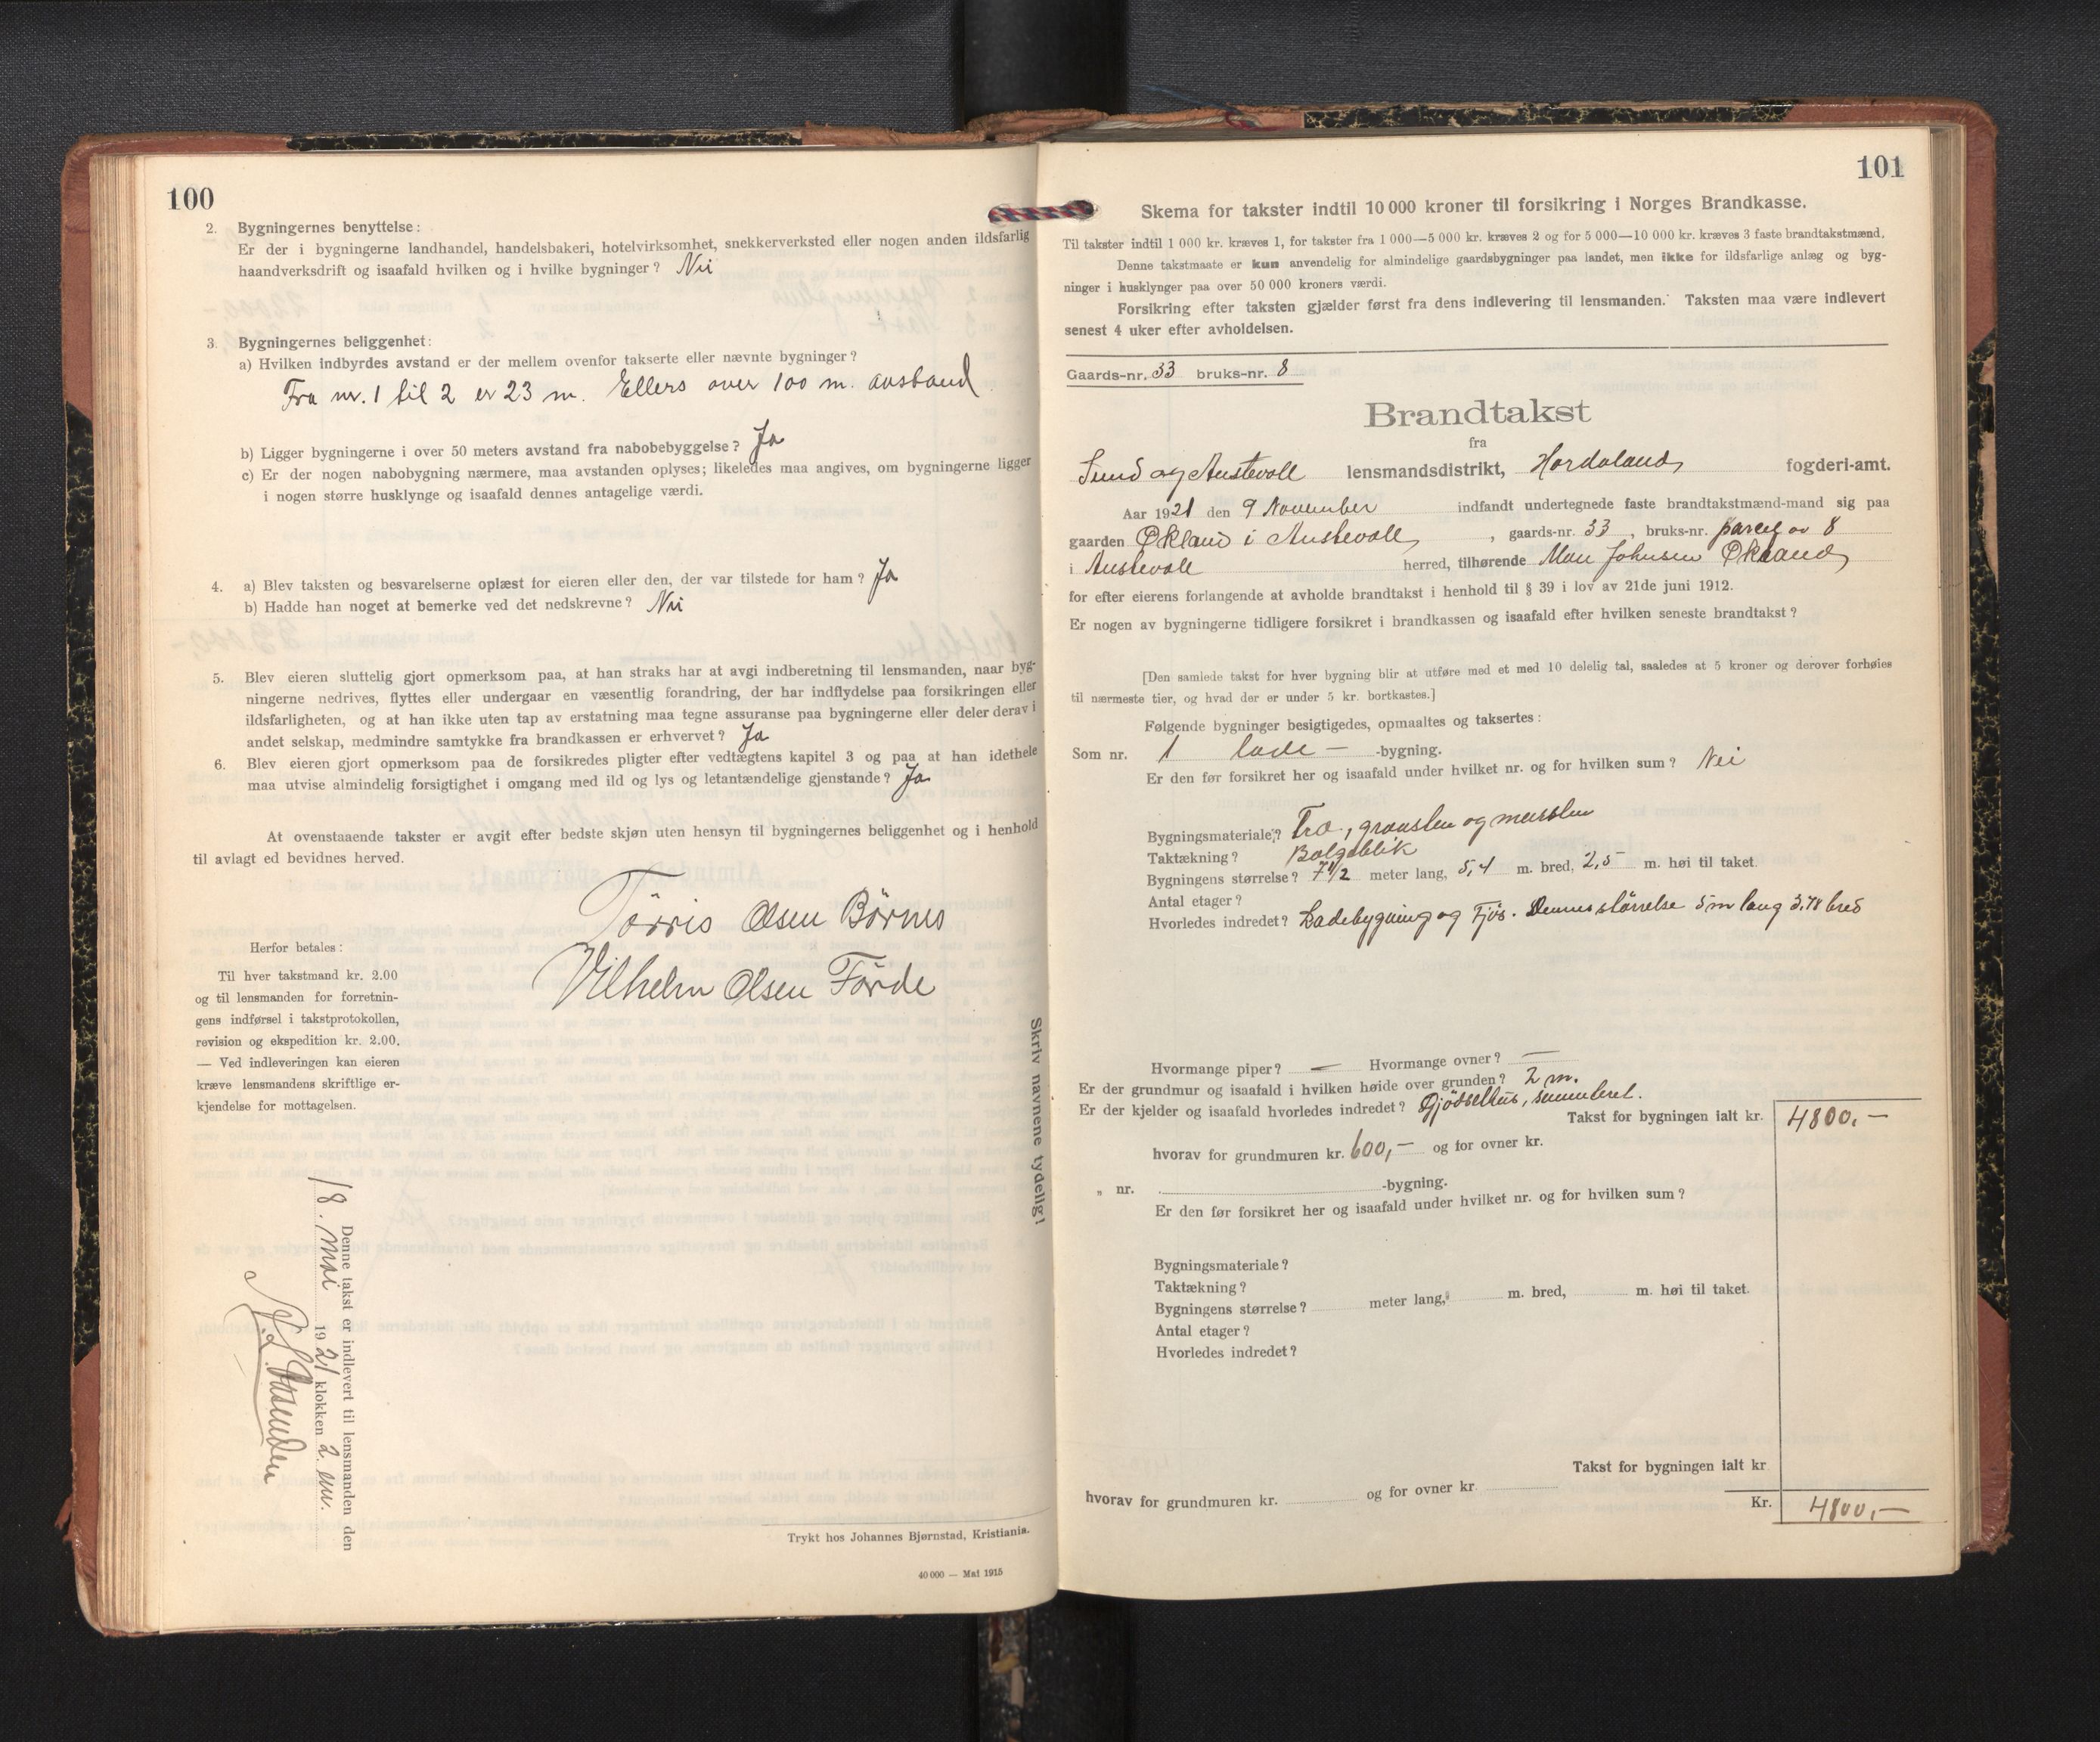 100
2. Bygningernes benyttelse:
Er der i bygningerne landhandel, handelsbakeri, hotelvirksomhet, snekkerverksted eller nogen anden ildsfarlig
haandverksdrift og isaafald hvilken og i hvilke bygninger? Nei
3. Bygningernes beliggenhet:
a) Hvilken indbyrdes avstand er der mellem ovenfor takserte eller nævnte bygninger?
Fra nr. 1 til 2 er 23 m. Ellers over 100 m. avstand
b) Ligger bygningerne i over 50 meters avstand fra nabobebyggelse? Ja
c) Er der nogen nabobygning nærmere, maa avstanden oplyses; likeledes maa angives, om bygningerne ligger
i nogen større husklynge og isaafald dennes antagelige værdi.
4. a) Blev taksten og besvarelserne oplæst for eieren eller den, der var tilstede for ham? Ja
b) Hadde han noget at bemerke ved det nedskrevne? Nei
5. Blev eieren sluttelig gjort opmerksom paa, at han straks har at avgi indberetning til lensmanden, naar byg-
ningerne nedrives, flyttes eller undergaar en væsentlig forandring, der har indflydelse paa forsikringen eller
ildsfarligheten, og at han ikke uten tap av erstatning maa tegne assuranse paa bygningerne eller deler derav i
andet selskap, medmindre samtykke fra brandkassen er erhvervet? Ja
6. Blev eieren gjort opmerksom paa de forsikredes pligter efter vedtægtens kapitel 3 og paa at han idethele
maa utvise almindelig forsigtighet i omgang med ild og lys og letantændelige gjenstande? Ja
At ovenstaaende takster er avgit efter bedste skjøn uten hensyn til bygningernes beliggenhet og i henhold
til avlagt ed bevidnes herved.
Törris Olsen Börnes
Vilhelm Olsen Förde
Herfor betales:
Til hver takstmand kr. 2.00
og til lensmanden for forretnin-
gens indførsel i takstprotokollen,
revision og ekspedition kr. 2.00.
— Ved indleveringen kan eieren
kræve lensmandens skriftlige er-
kjendelse for mottagelsen.
Skriv navnene tydelig!
Denne takst er indlevert til lensmanden den
18. mai 1921 klokken 2. em.
Trykt hos Johannes Bjørnstad, Kristiania.
40 000 — Mai 1915
101
Skema for takster indtil 10 000 kroner til forsikring i Norges Brandkasse.
Til takster indtil 1 000 kr. kræves 1, for takster fra 1 000—5 000 kr. kræves 2 og for 5 000—10 000 kr. kræves 3 faste brandtakstmænd.
Denne takstmaate er kun anvendelig for almindelige gaardsbygninger paa landet, men ikke for ildsfarlige anlæg og byg-
ninger i husklynger paa over 50 000 kroners værdi.
Forsikring efter taksten gjælder først fra dens indlevering til lensmanden. Taksten maa være indlevert
senest 4 uker efter avholdelsen.
Gaards-nr. 33 bruks-nr. 8
Brandtakst
fra
Sund og Austevoll lensmandsdistrikt, Hordaland fogderi-amt.
Aar 1921 den 9 November indfandt undertegnede faste brandtakstmænd-mand sig paa
gaarden Økland i Austevoll, gaards-nr. 33, bruks-nr. parcel av 8
i Austevoll herred, tilhørende Mon Johnsen Økland
for efter eierens forlangende at avholde brandtakst i henhold til § 39 i lov av 21de juni 1912.
Er nogen av bygningerne tidligere forsikret i brandkassen og isaafald efter hvilken seneste brandtakst?
[Den samlede takst for hver bygning blir at utføre med et med 10 delelig tal, saaledes at 5 kroner og derover forhøies
til nærmeste tier, og hvad der er under 5 kr. bortkastes.]
Følgende bygninger besigtigedes, opmaaltes og taksertes:
Som nr. 1 lade— -bygning.
Er den før forsikret her og isaafald under hvilket nr. og for hvilken sum? Nei
Bygningsmateriale? Træ, graasten og mursten
Taktækning? Bølgeblik
Bygningens størrelse? 7 1/2 meter lang, 5,4 m. bred, 2,5 m. høi til taket.
Antal etager?
Hvorledes indredet? Ladebygning og Fjös. Dennes störrelse 5 m lang 3.78 bred
Hvormange piper? — Hvormange ovner? —
Er der grundmur og isaafald i hvilken høide over grunden? 2 m.
Er der kjelder og isaafald hvorledes indredet? Gjödselhus, sementeret.
Takst for bygningen ialt kr. 4800,—
hvorav for grundmuren kr. 600,— og for ovner kr.
„ nr. -bygning.
Er den før forsikret her og isaafald under hvilket nr. og for hvilken sum?
Bygningsmateriale?
Taktækning?
Bygningens størrelse? meter lang, m. bred, m. høi til taket.
Antal etager?
Hvorledes indredet?
Takst for bygningen ialt kr
hvorav for grundmuren kr. og for ovner kr.
Kr. 4800,—